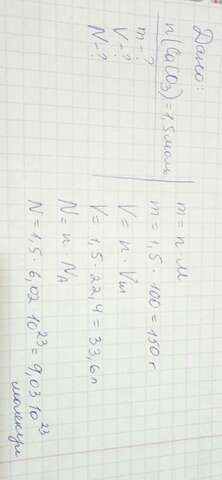 Дано:
n(CaCO3)=1,5моль
m-?
V-?
N-?
m = n M
m = 1,5 · 100 = 150 г
V = n · Vм
V = 1,5 · 22,4 = 33,6л
N = n · NA
N = 1,5 · 6,02 10^23 = 9,03 10^23
молекул